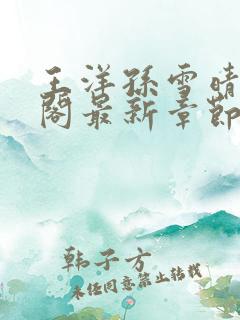 王洋孙雪晴
阁最新章节
韩子方
未经同意禁止转载